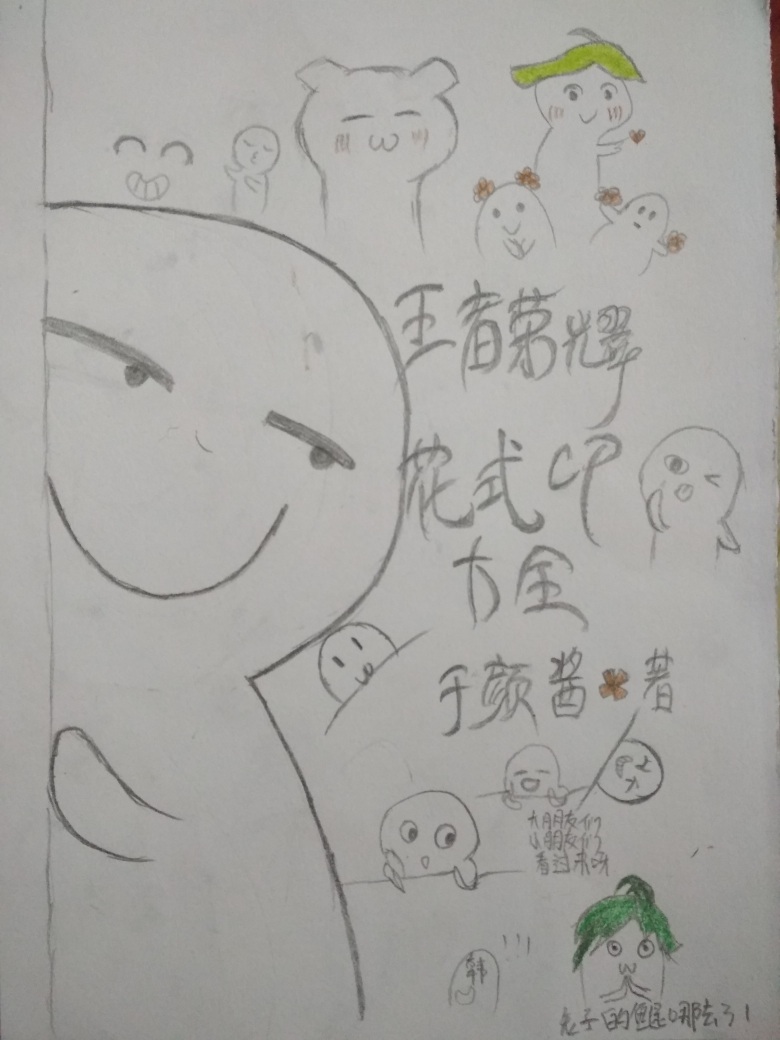 王者荣耀
花式CP
大全
于颜酱著
大朋友们
小朋友们
看过来呀
韩
!!!
老子的腿哪去了!